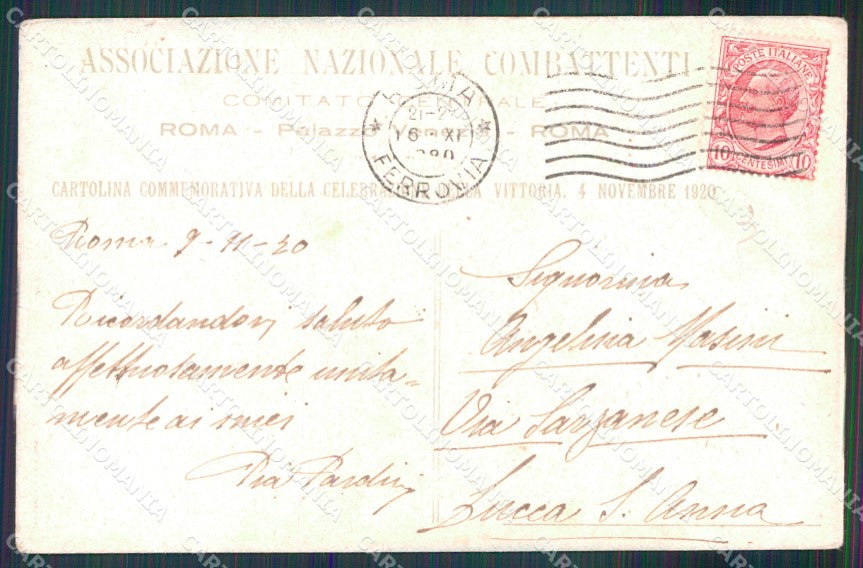 ASSOCIAZIONE NAZIONALE COMBATTENTI
COMITATO CENTRALE
ROMA - Palazzo Venezia - ROMA
CARTOLINA COMMEMORATIVA DELLA CELEBRAZIONE DELLA VITTORIA. 4 NOVEMBRE 1920
ROMA
21-2
XI
FERROVIA
POSTE ITALIANE
10 CENTESIMI 10
Roma 9-11-20
Ricordandovi saluto
affettuosamente unita=
mente ai miei
Pia Pardini
Signorina
Angelina Masini
Via Sarzanese
Lucca S. Anna
CARTOLINOMANIA